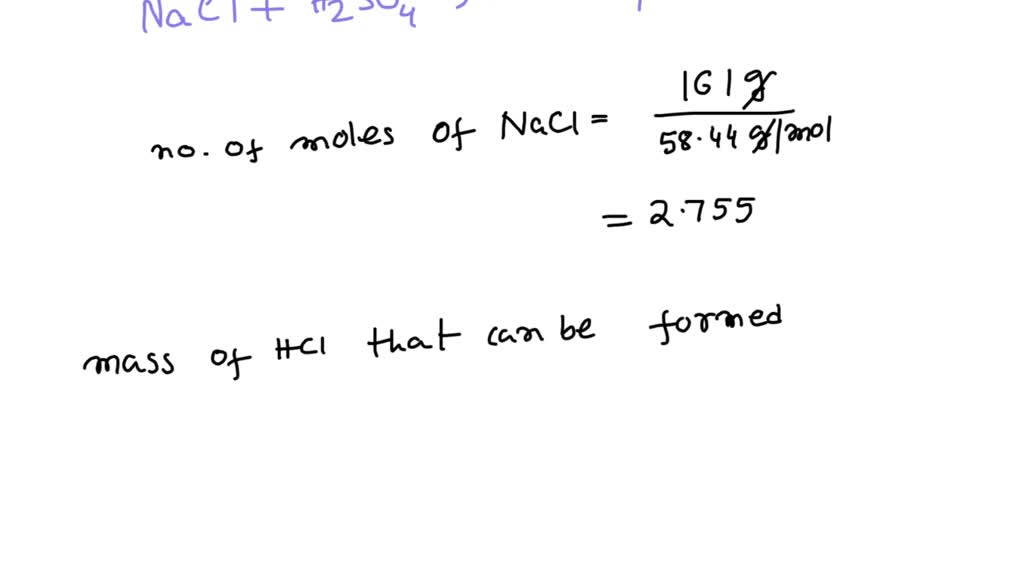 NaCl + H2SO4
no. of moles of NaCl = 161 g / 58.44 g/mol
= 2.755
mass of HCl that can be formed